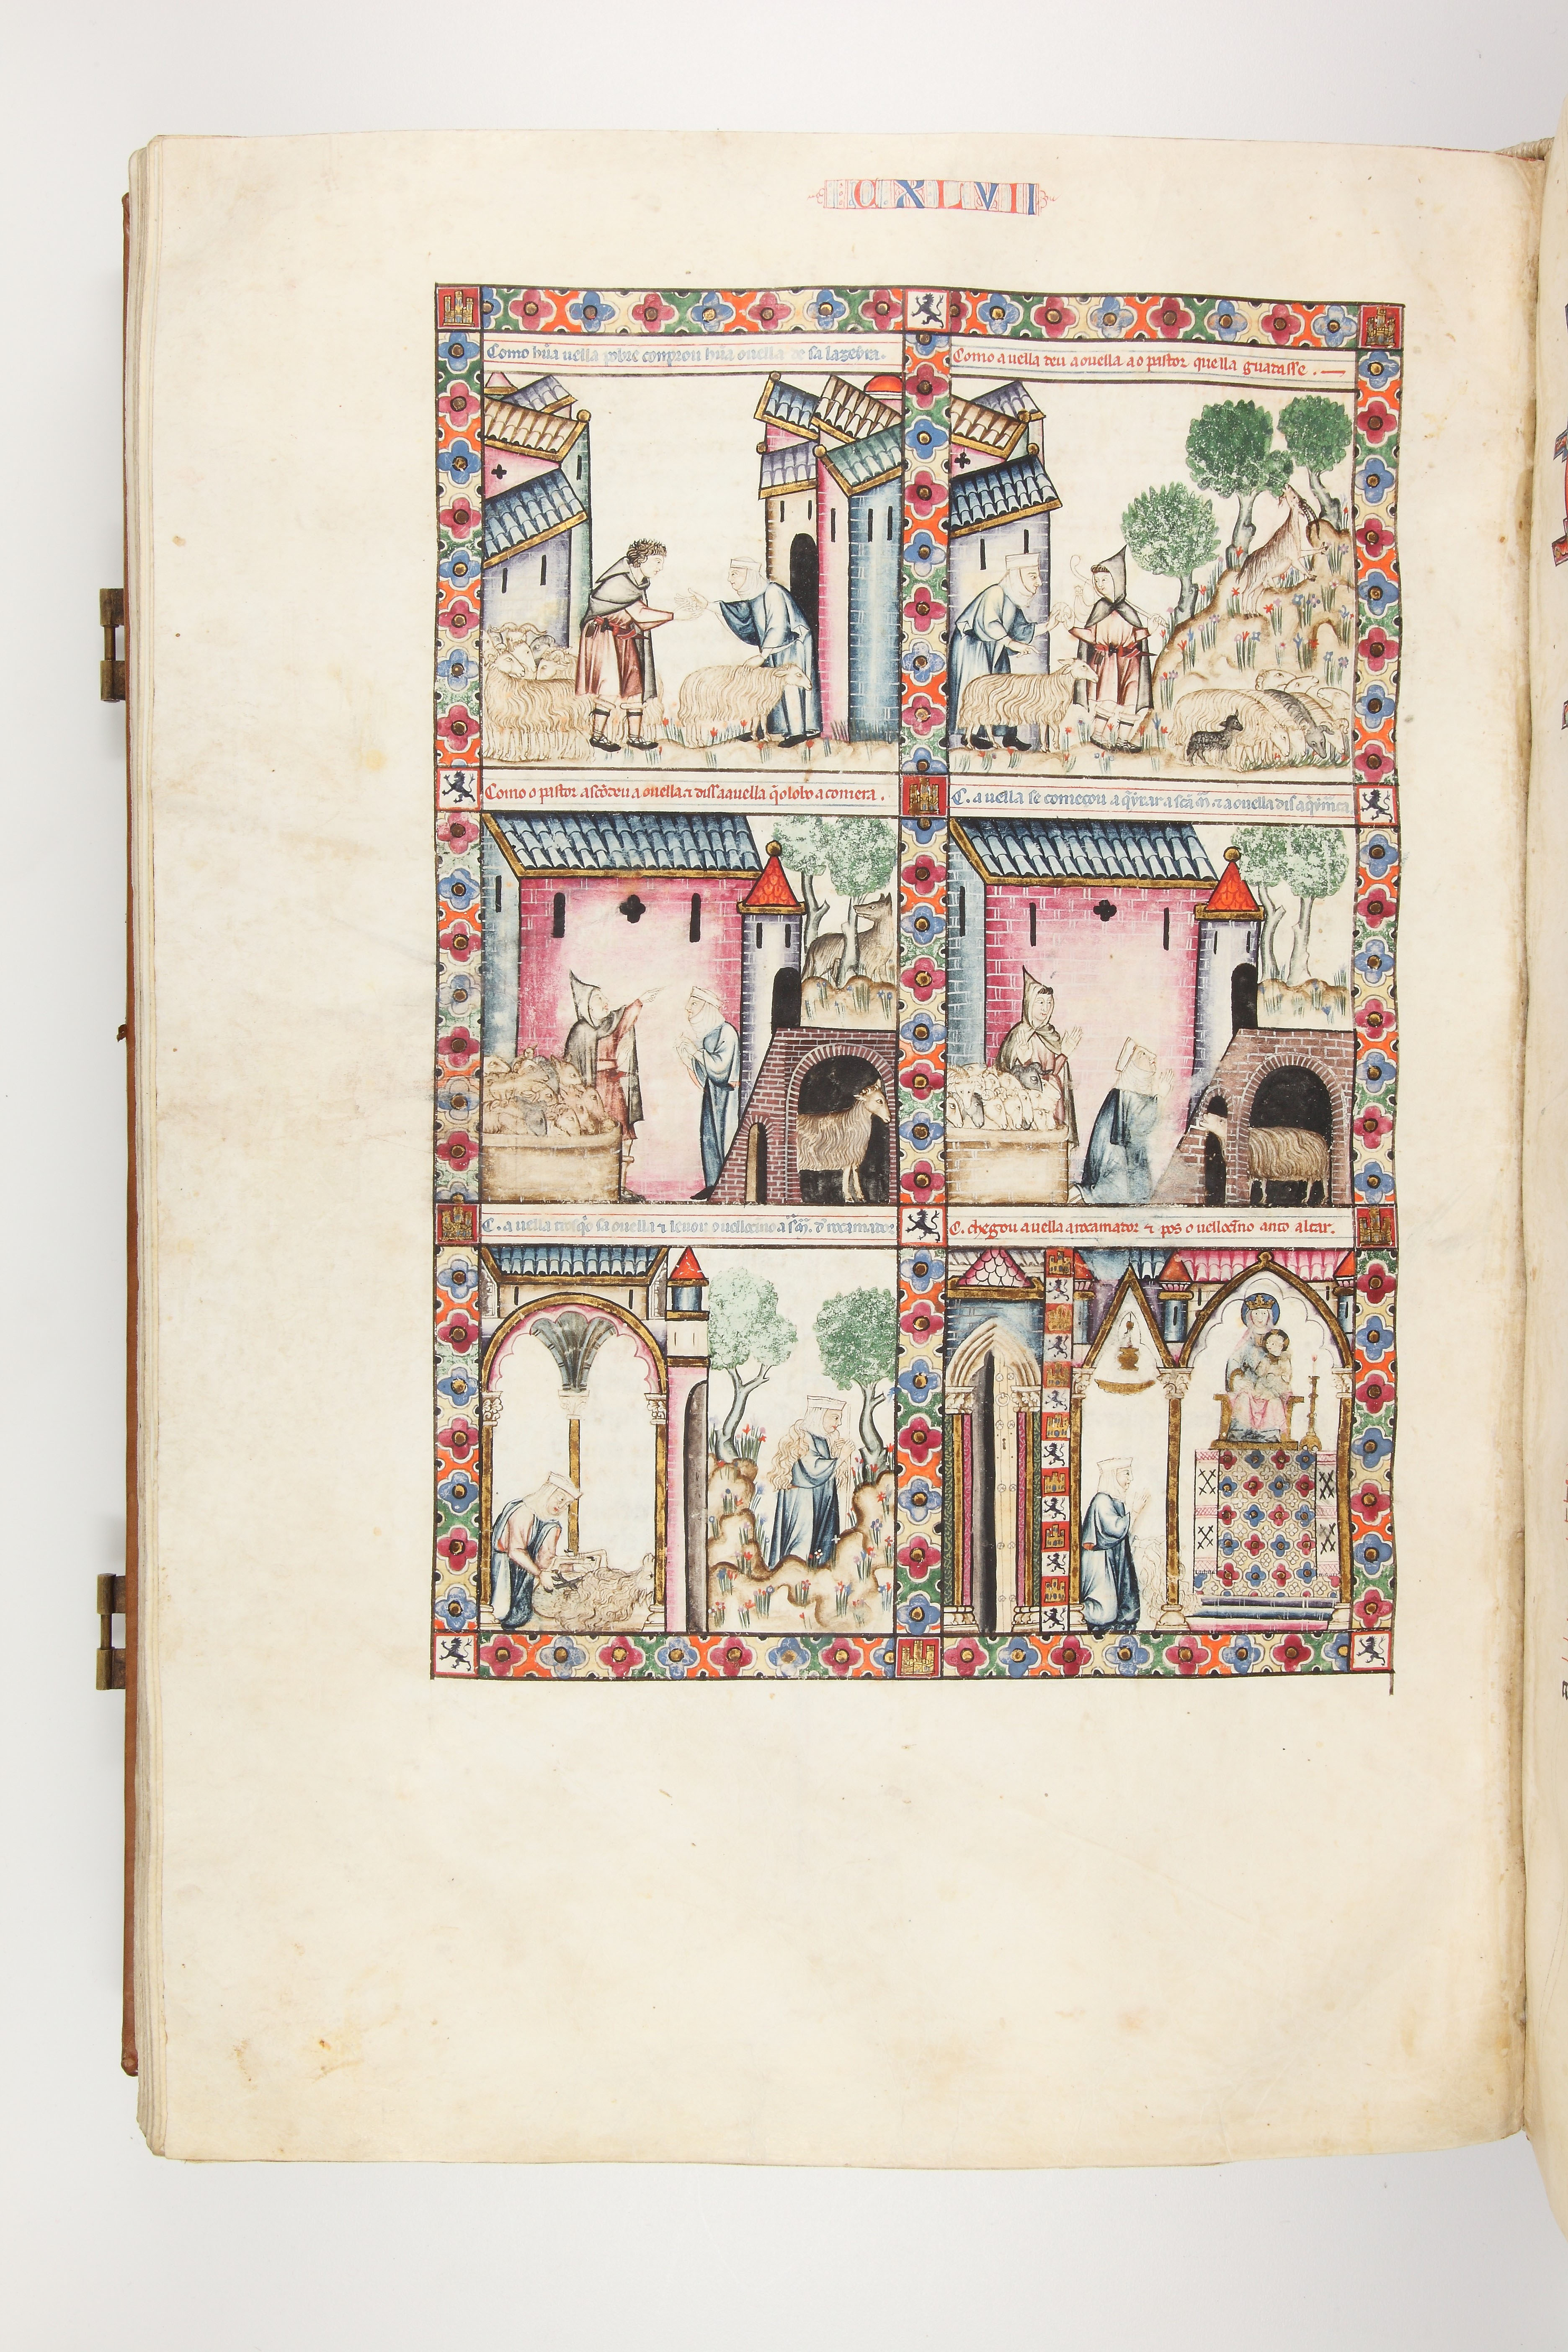 CXLVII
Como hũa uella pobre conprou hũa ouella de sa lazeira.
Como a uella deu a ouella ao pastor quella guardasse.
Como o pastor ascõdeu a ouella ⁊ diss aa uella q̃ o lobo a comera.
C. a uella se começou a q̃yxar a scã m̃ ⁊ a ouella dis aq̃ym
C. a uella trosq̃o sa ouella ⁊ leuou o uelloc̃no a s̃. m̃. d̃ rocamador
C. chegou a uella a rocamador ⁊ pos o uelloc̃no anto altar.